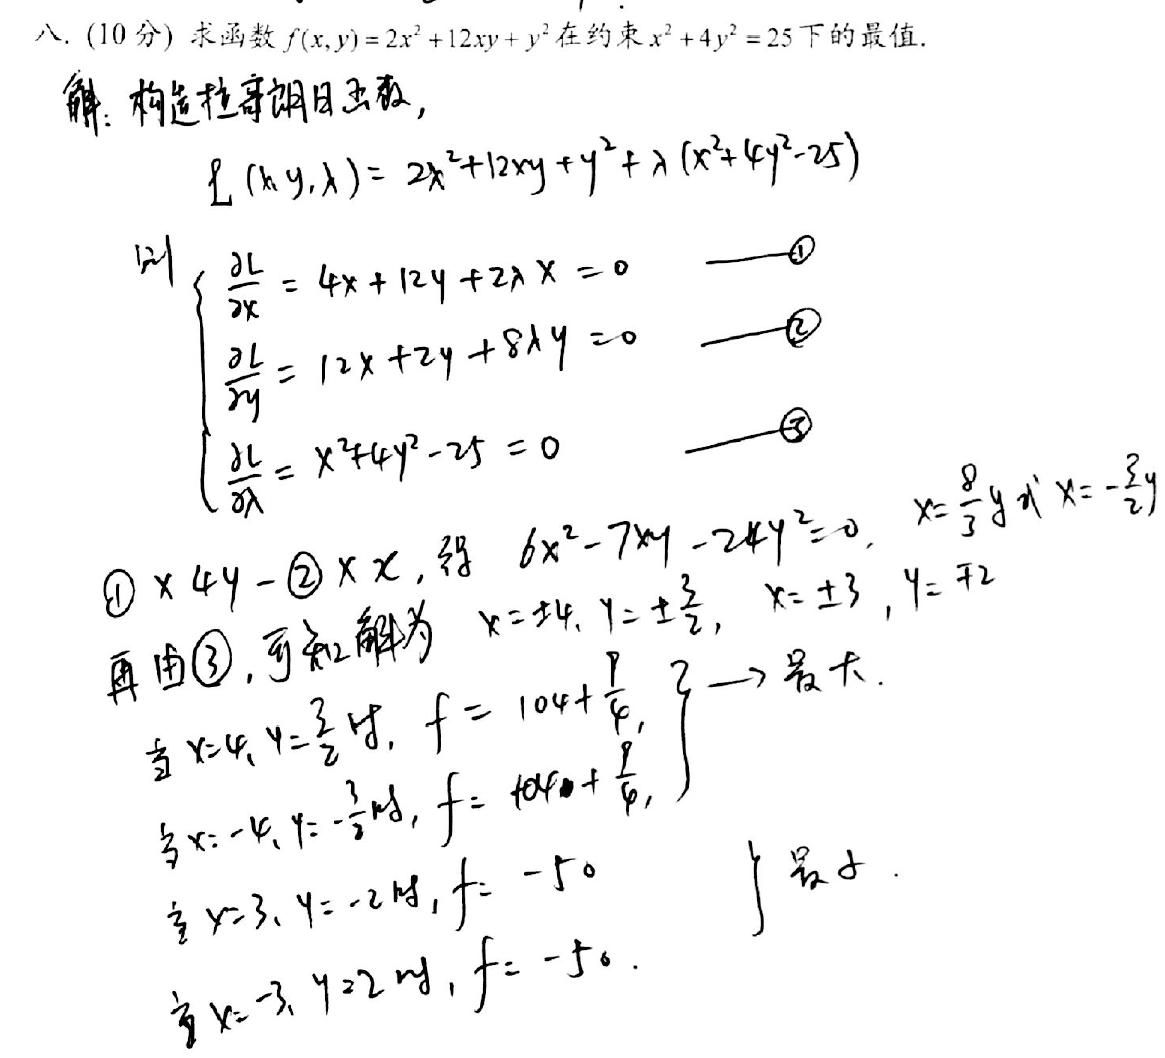 八. (10 分) 求函数 f(x,y)=2x²+12xy+y² 在约束 x²+4y²=25 下的最值.
解: 构造拉哥朗日函数,
L(x,y,λ)= 2x²+12xy+y²+λ(x²+4y²-25)
则
∂L/∂x = 4x+12y+2λx=0 ——①
∂L/∂y = 12x+2y+8λy=0 ——②
∂L/∂λ = x²+4y²-25=0 ——③
①×4y-②×x, 得 6x²-7xy-24y²=0, x=8/3y 或 x=-3/2y
再由③, 可知解为 x=±4, y=±3/2, x=±3, y=∓2
当 x=4, y=3/2 时, f= 104+9/4, } → 最大.
当 x=-4, y=-3/2 时, f= 104+9/4,
当 x=3, y=-2 时, f= -50 } 最小.
当 x=-3, y=2 时, f= -50.